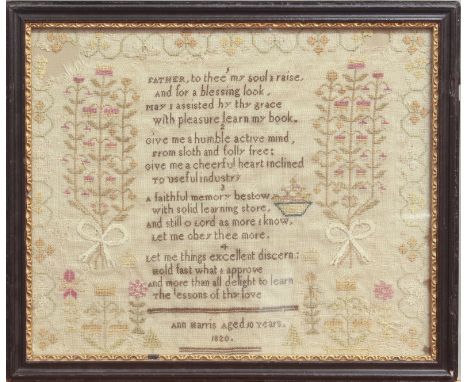 1
FATHER, to thee my soul I raise,
And for a blessing look,
May I assisted by thy grace
With pleasure learn my book.
2
Give me a humble active mind,
From sloth and folly free;
Give me a cheerful heart inclined
To useful industry
3
A faithful memory bestow
With solid learning store,
And still O Lord as more I know,
Let me obey thee more.
4
Let me things excellent discern;
Hold fast what I approve
And more than all delight to learn
The lessons of thy love
Ann Harris Aged 10 Years.
1820.